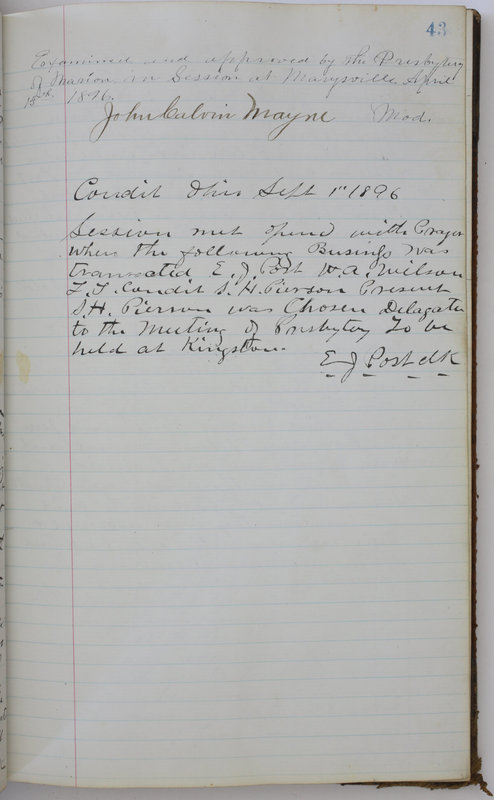 43
Examined and approved by the Presbytery
of Marion in Session at Marysville April
18th 1896.
John Calvin Mayne Mod.
Condit Ohio Sept 1st 1896
Session met opend with Prayer
when the following Business was
transacted E. J. Post W. A. Neilson
F. F. Condit S. H. Pierson Present
S. H. Pierson was Chosen Delagate
to the Meeting of Presbytey To be
held at Kingston.
E J Post clk